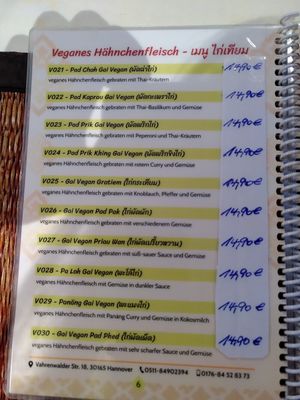 Veganes Hähnchenfleisch - เมนู ไก่เทียม
V021 - Pad Chah Gai Vegan (ผัดฉ่าไก่)
veganes Hähnchenfleisch gebraten mit Thai-Kräutern
V022 - Pad Kaprau Gai Vegan (ผัดกะเพราไก่) 14,90 €
veganes Hähnchenfleisch gebraten mit Thai-Basilikum und Gemüse
V023 - Pad Prik Gai Vegan (ผัดพริกไก่)
veganes Hähnchenfleisch gebraten mit Peperoni und Thai-Kräutern
V024 - Pad Prik Khing Gai Vegan (ผัดพริกขิงไก่) 14,90 €
veganes Hähnchenfleisch gebraten mit rotem Curry und Gemüse
V025 - Gai Vegan Gratiem (ไก่กระเทียม)
veganes Hähnchenfleisch gebraten mit Knoblauch, Pfeffer und Gemüse
V026 - Gai Vegan Pad Pak (ไก่ผัดผัก) 14,90 €
veganes Hähnchenfleisch gebraten mit verschiedenem Gemüse
V027 - Gai Vegan Priau Wan (ไก่ผัดเปรี้ยวหวาน) 14,90 €
veganes Hähnchenfleisch gebraten mit süß-sauer Sauce und Gemüse
V028 - Pa Loh Gai Vegan (พะโล้ไก่) 14,90 €
veganes Hähnchenfleisch mit Gemüse in dunkler Sauce
V029 - Panäng Gai Vegan (พะแนงไก่) 14,90 €
veganes Hähnchenfleisch mit Panäng Curry und Gemüse in Kokosmilch
V030 - Gai Vegan Pad Phed (ไก่ผัดเผ็ด) 14,90 €
veganes Hähnchenfleisch gebraten mit sehr scharfer Sauce und Gemüse
Vahrenwalder Str. 18, 30165 Hannover 0511-84902394 0176-84 52 83 73
6